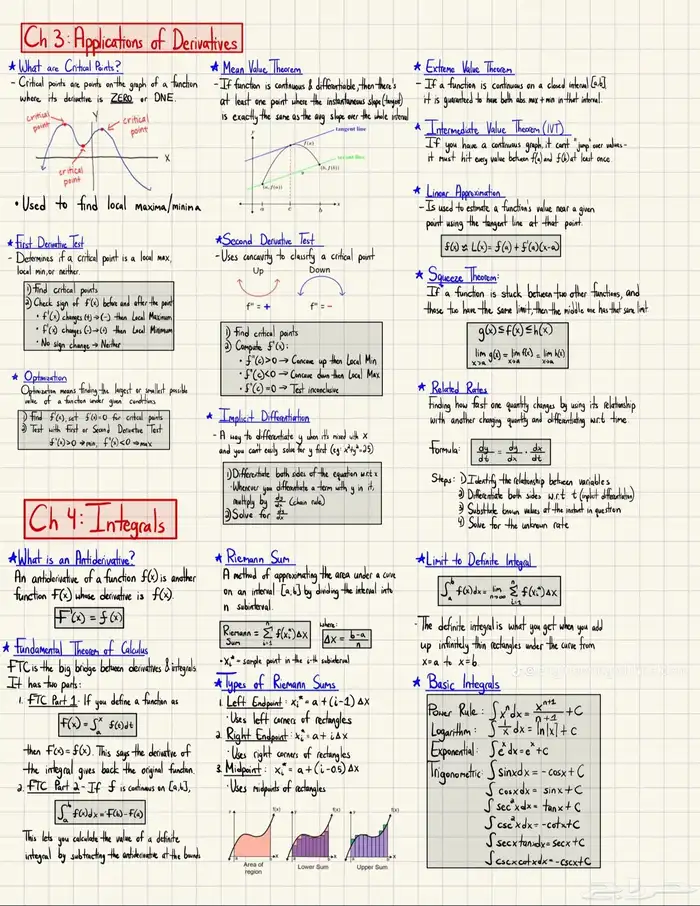 Ch 3: Applications of Derivatives
★ What are Critical Points?
- Critical points are points on the graph of a function
where its derivative is ZERO or DNE.
critical point
Y
critical point
critical point
X
• Used to find local maxima/minima
★ First Derivative Test
- Determines if a critical point is a local max,
local min, or neither.
1) Find critical points
2) Check sign of f'(x) before and after the point
• f'(x) changes (+) → (-) then Local Maximum
• f'(x) changes (-) → (+) then Local Minimum
• No sign change → Neither
★ Optimization
Optimization means finding the largest or smallest possible
value of a function under given conditions
1) Find f'(x), set f'(x)=0 for critical points
2) Test with First or Second Derivative Test
f''(x)>0 → min, f''(x)<0 → max
★ Mean Value Theorem
- If function is continuous & differentiable, then there's
at least one point where the instantaneous slope (tangent)
is exactly the same as the avg slope over the whole interval
tangent line
y
f(x)
secant line
(b, f(b))
(a, f(a))
a c b x
★ Second Derivative Test
- Uses concavity to classify a critical point
Up Down
f'' = + f'' = -
1) Find critical points
2) Compute f'':
• f''(c)>0 → Concave up then Local Min
• f''(c)<0 → Concave down then Local Max
• f''(c)=0 → Test inconclusive
★ Implicit Differentiation
- A way to differentiate y when its mixed with x
and you can't easily solve for y first (eg: x²+y²=25)
1) Differentiate both sides of the equation w.r.t x
• Whenever you differentiate a term with y in it,
multiply by dy/dx (chain rule)
2) Solve for dy/dx
★ Extreme Value Theorem
- If a function is continuous on a closed interval [a,b],
it is guaranteed to have both abs. max + min in that interval.
★ Intermediate Value Theorem (IVT)
If you have a continuous graph, it can't "jump" over values-
it must hit every value between f(a) and f(b) at least once.
★ Linear Approximation
- Is used to estimate a function's value near a given
point using the tangent line at that point.
f(x) ≈ L(x) = f(a) + f'(a)(x-a)
★ Squeeze Theorem:
If a function is stuck between two other functions, and
those two have the same limit, then the middle one has that same limit
g(x) ≤ f(x) ≤ h(x)
lim x→a g(x) = lim x→a f(x) = lim x→a h(x)
★ Related Rates
Finding how fast one quantity changes by using its relationship
with another changing quantity and differentiating w.r.t time
Formula: dy/dt = dy/dx · dx/dt
Steps: 1) Identify the relationship between variables
2) Differentiate both sides w.r.t. t (implicit differentiation)
3) Substitute known values of the instant in question
4) Solve for the unknown rate
Ch 4: Integrals
★ What is an Antiderivative?
An antiderivative of a function f(x) is another
function F(x) whose derivative is f(x).
F'(x) = f(x)
★ Fundamental Theorem of Calculus
FTC is the big bridge between derivatives & integrals.
It has two parts:
1. FTC Part 1: If you define a function as
F(x) = ∫ₐˣ f(t)dt
then F'(x) = f(x). This says the derivative of
the integral gives back the original function.
2. FTC Part 2 - If f is continuous on [a,b],
∫ₐᵇ f(x)dx = F(b) - F(a)
This lets you calculate the value of a definite
integral by subtracting the antiderivative at the bounds
★ Riemann Sum
A method of approximating the area under a curve
on an interval [a,b] by dividing the interval into
n subinterval.
Riemann Sum = Σᵢ₌₁ⁿ f(xᵢ*)Δx
where:
Δx = b-a/n
• xᵢ* = sample point in the i-th subinterval
★ Types of Riemann Sums
1. Left Endpoint: xᵢ* = a + (i-1)Δx
• Uses left corners of rectangles
2. Right Endpoint: xᵢ* = a + iΔx
• Uses right corners of rectangles
3. Midpoint: xᵢ* = a + (i-0.5)Δx
• Uses midpoints of rectangles
Y f(x) Y f(x) Y f(x)
x x x
Area of region
Lower Sum
Upper Sum
★ Limit to Definite Integral
∫ₐᵇ f(x)dx = lim n→∞ Σᵢ₌₁ⁿ f(xᵢ*)Δx
- The definite integral is what you get when you add
up infinitely thin rectangles under the curve from
x=a to x=b.
★ Basic Integrals
Power Rule: ∫xⁿdx = xⁿ⁺¹/n+1 + C
Logarithm: ∫1/x dx = ln|x| + C
Exponential: ∫eˣdx = eˣ + C
Trigonometric: ∫sinxdx = -cosx + C
∫cosxdx = sinx + C
∫sec²xdx = tanx + C
∫csc²xdx = -cotx + C
∫secxtanxdx = secx + C
∫cscxcotxdx = -cscx + C